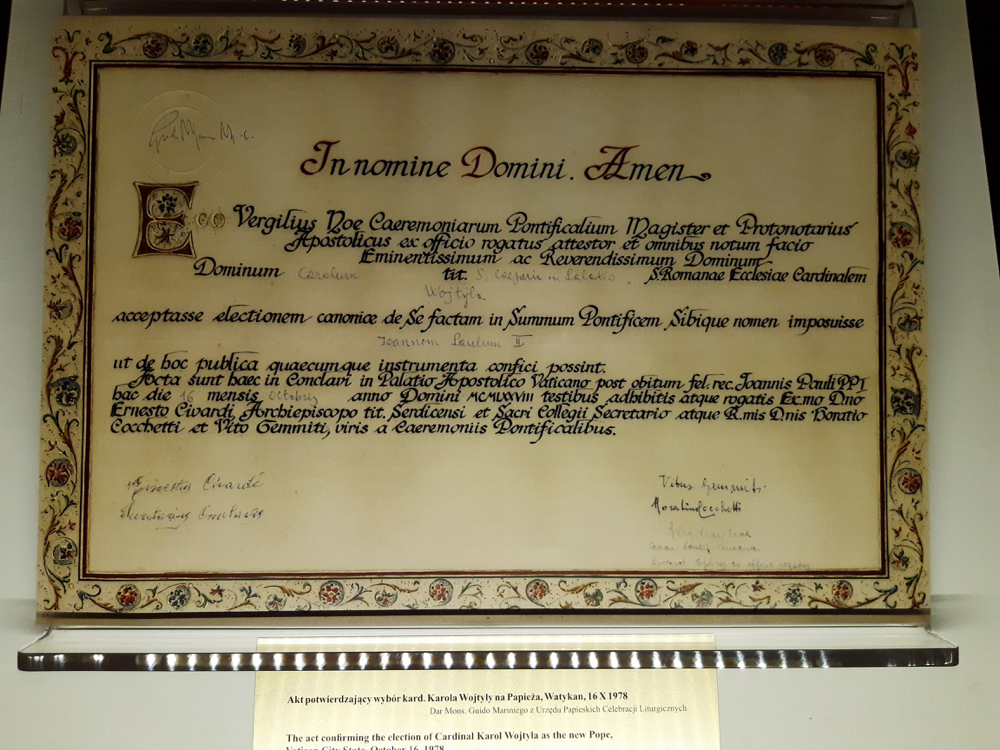 In nomine Domini. Amen
Ego Vergilius Noe Caeremoniarum Pontificalium Magister et Protonotarius
Apostolicus ex officio rogatus attestor et omnibus notum facio
Eminentissimum ac Reverendissimum Dominum
Dominum Carolum tit. S. S. Romanae Ecclesiae Cardinalem
Wojtyla
acceptasse electionem canonice de Se factam in Summum Pontificem Sibique nomen imposuisse
Ioannem Paulum II
ut de hoc publica quaecumque instrumenta confici possint.
Acta sunt haec in Conclavi in Palatio Apostolico Vaticano post obitum fel: rec. Joannis Pauli PP I
hac die 16 mensis Octobris anno Domini MCMLXXVIII testibus adhibitis atque rogatis Exc.mo Dno
Ernesto Civardi, Archiepiscopo tit. Serdicensi et Sacri Collegii Secretario atque R.mis Dnis Horatio
Cocchetti et Vito Gemmiti, viris a Caeremoniis Pontificalibus.
Ernestus Civardi
Vitus Gemmiti
Horatius Cocchetti
Akt potwierdzający wybór kard. Karola Wojtyły na Papieża, Watykan, 16 X 1978
Dar Mons. Guido Mariniego z Urzędu Papieskich Celebracji Liturgicznych
The act confirming the election of Cardinal Karol Wojtyla as the new Pope,
Vatican City State, October 16, 1978